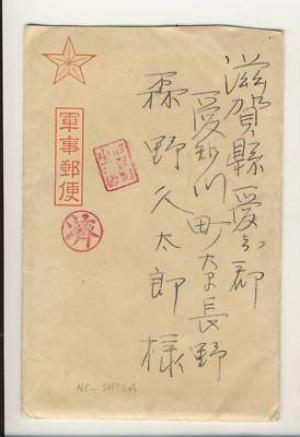 滋賀縣愛知郡
愛知川町大字長野
野久太郎様
軍事郵便
濟